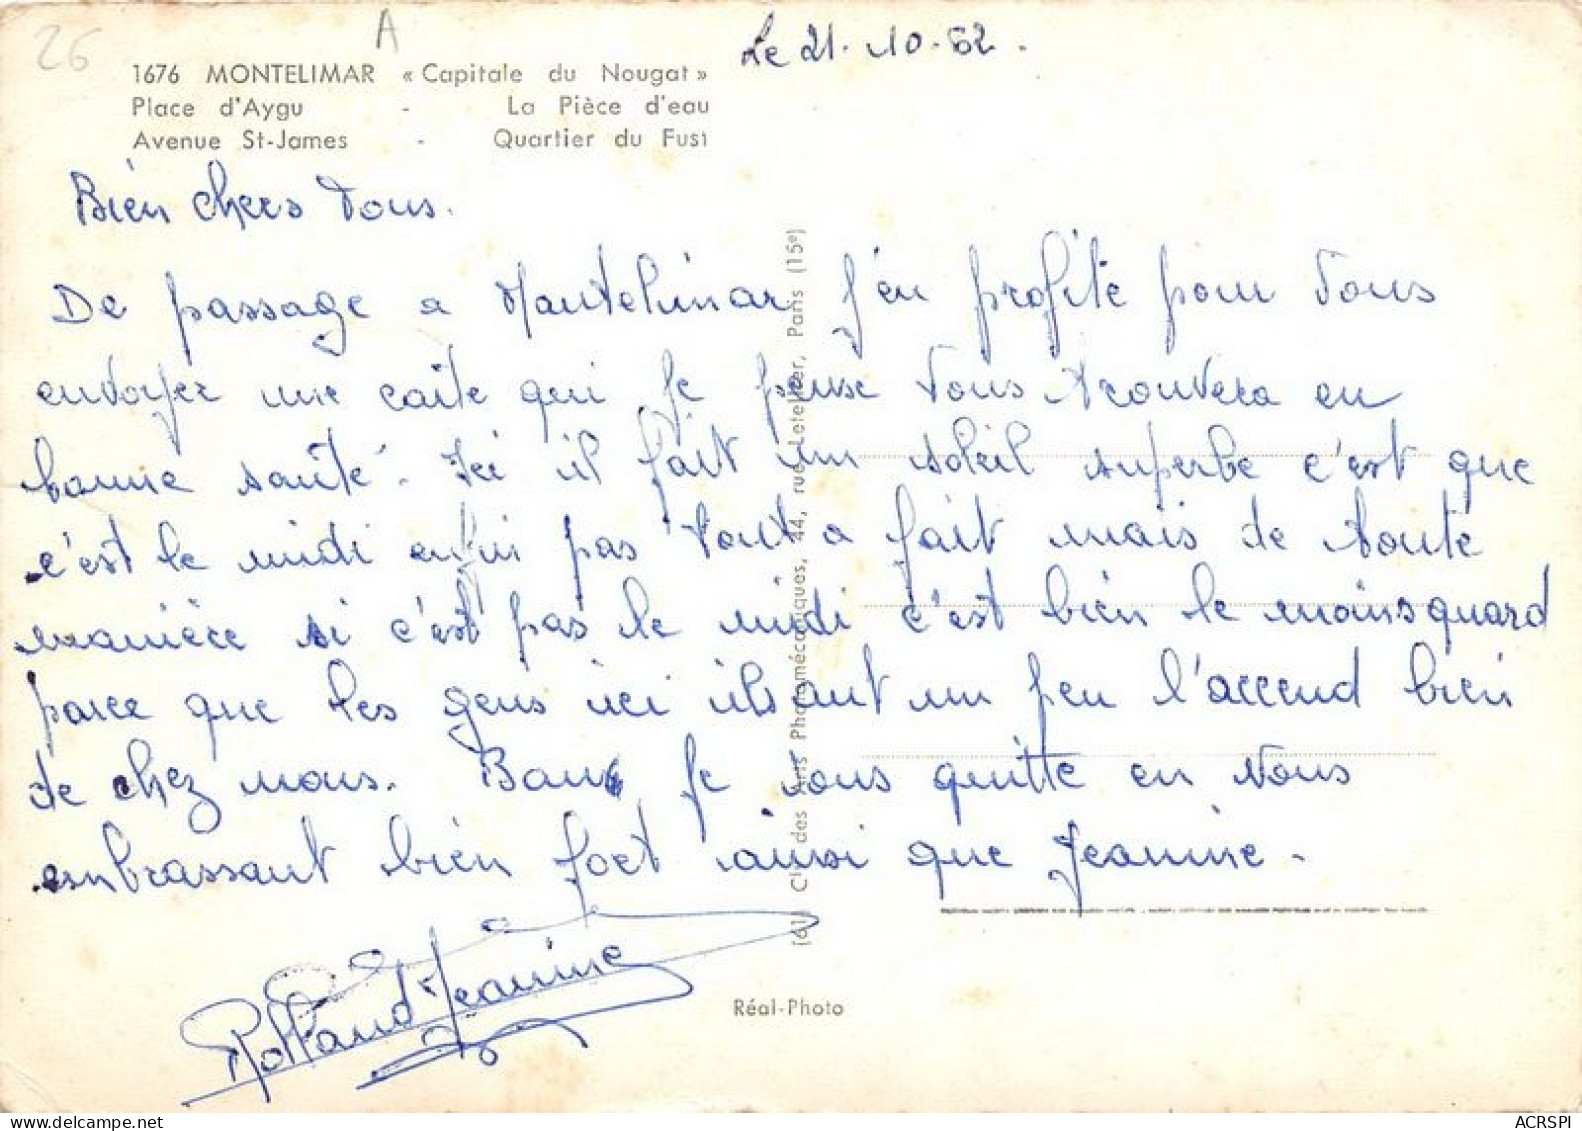 26
A
Le 21-10-62.
1676 MONTELIMAR « Capitale du Nougat »
Place d'Aygu - La Pièce d'eau
Avenue St-James - Quartier du Fust
Bien chers Vous.
De passage a Montelimar j'en profite pour Vous
envoyer une carte qui je pense Vous trouvera en
bonne santé. Ici il fait un soleil superbe c'est que
c'est le midi enfin pas tout a fait mais de toute
manière si c'est pas le midi c'est bien le moins quard
parce que les gens ici ils ont un peu l'accend bien
de chez nous. Bon je vous quitte en Vous
embrassant bien fort ainsi que Jeanine.
Rolland Jeanine
(61) Cl des Arts Photomécaniques, 44, rue Letellier, Paris (15e)
Réal-Photo
ACRSPI